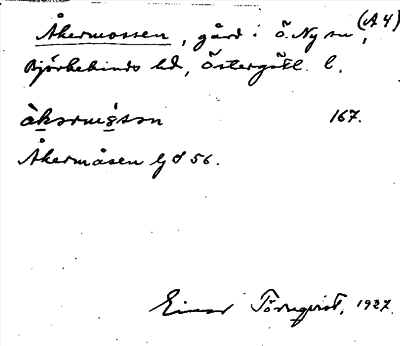 (A4)
Åkermossen, gård i Ö. Ny sn,
Björkekinds hd, Östergötl. l.
åkərmɷ̀sən 167.
Åkermåsen GJ 56.
Einar Törnqvist, 1927.